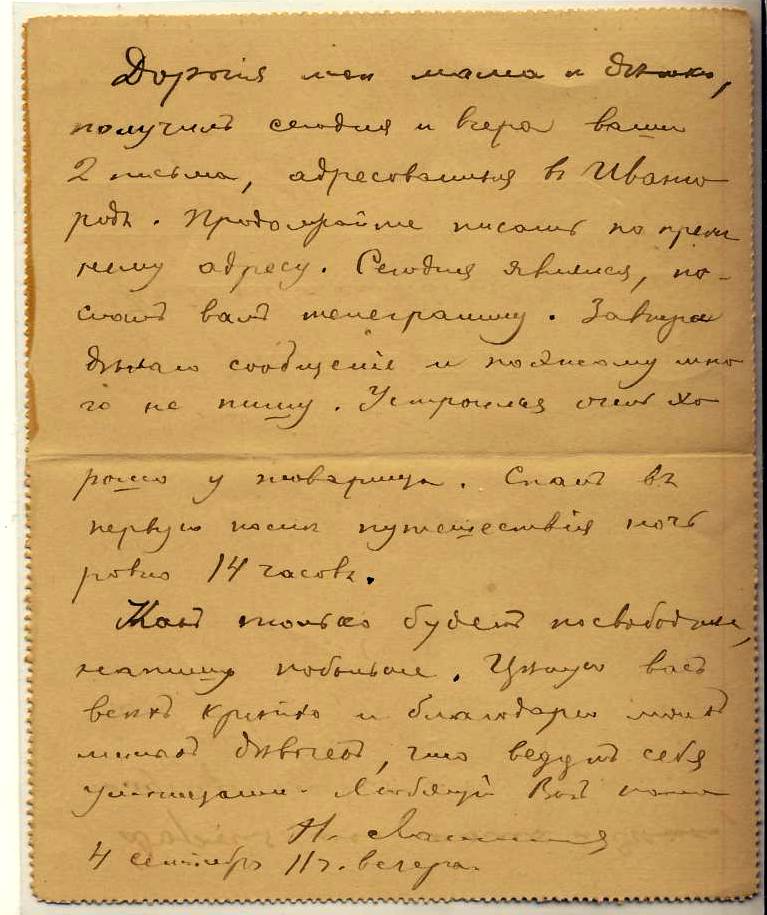 Дорогія мои мама и дѣтки,
получилъ сегодня и вчера ваши
2 письма, адресованныя въ Ивано
родъ. Продолжайте писать по преж
нему адресу. Сегодня явился, по-
слалъ вамъ телеграмму. Завтра
дѣлаю сообщеніе и поэтому мно
го не пишу. Устроился очень хо
рошо у товарища. Спалъ въ
первую послѣ путешествія ночь
ровно 14 часовъ.
Какъ только будетъ посвободнѣе,
напишу побольше. Цѣлую васъ
всѣхъ крѣпко и благодарю моихъ
милыхъ дѣвочекъ, что ведутъ себя
умницами. Любящій Васъ папа
Н.
4 сентября 11 г. вечера.